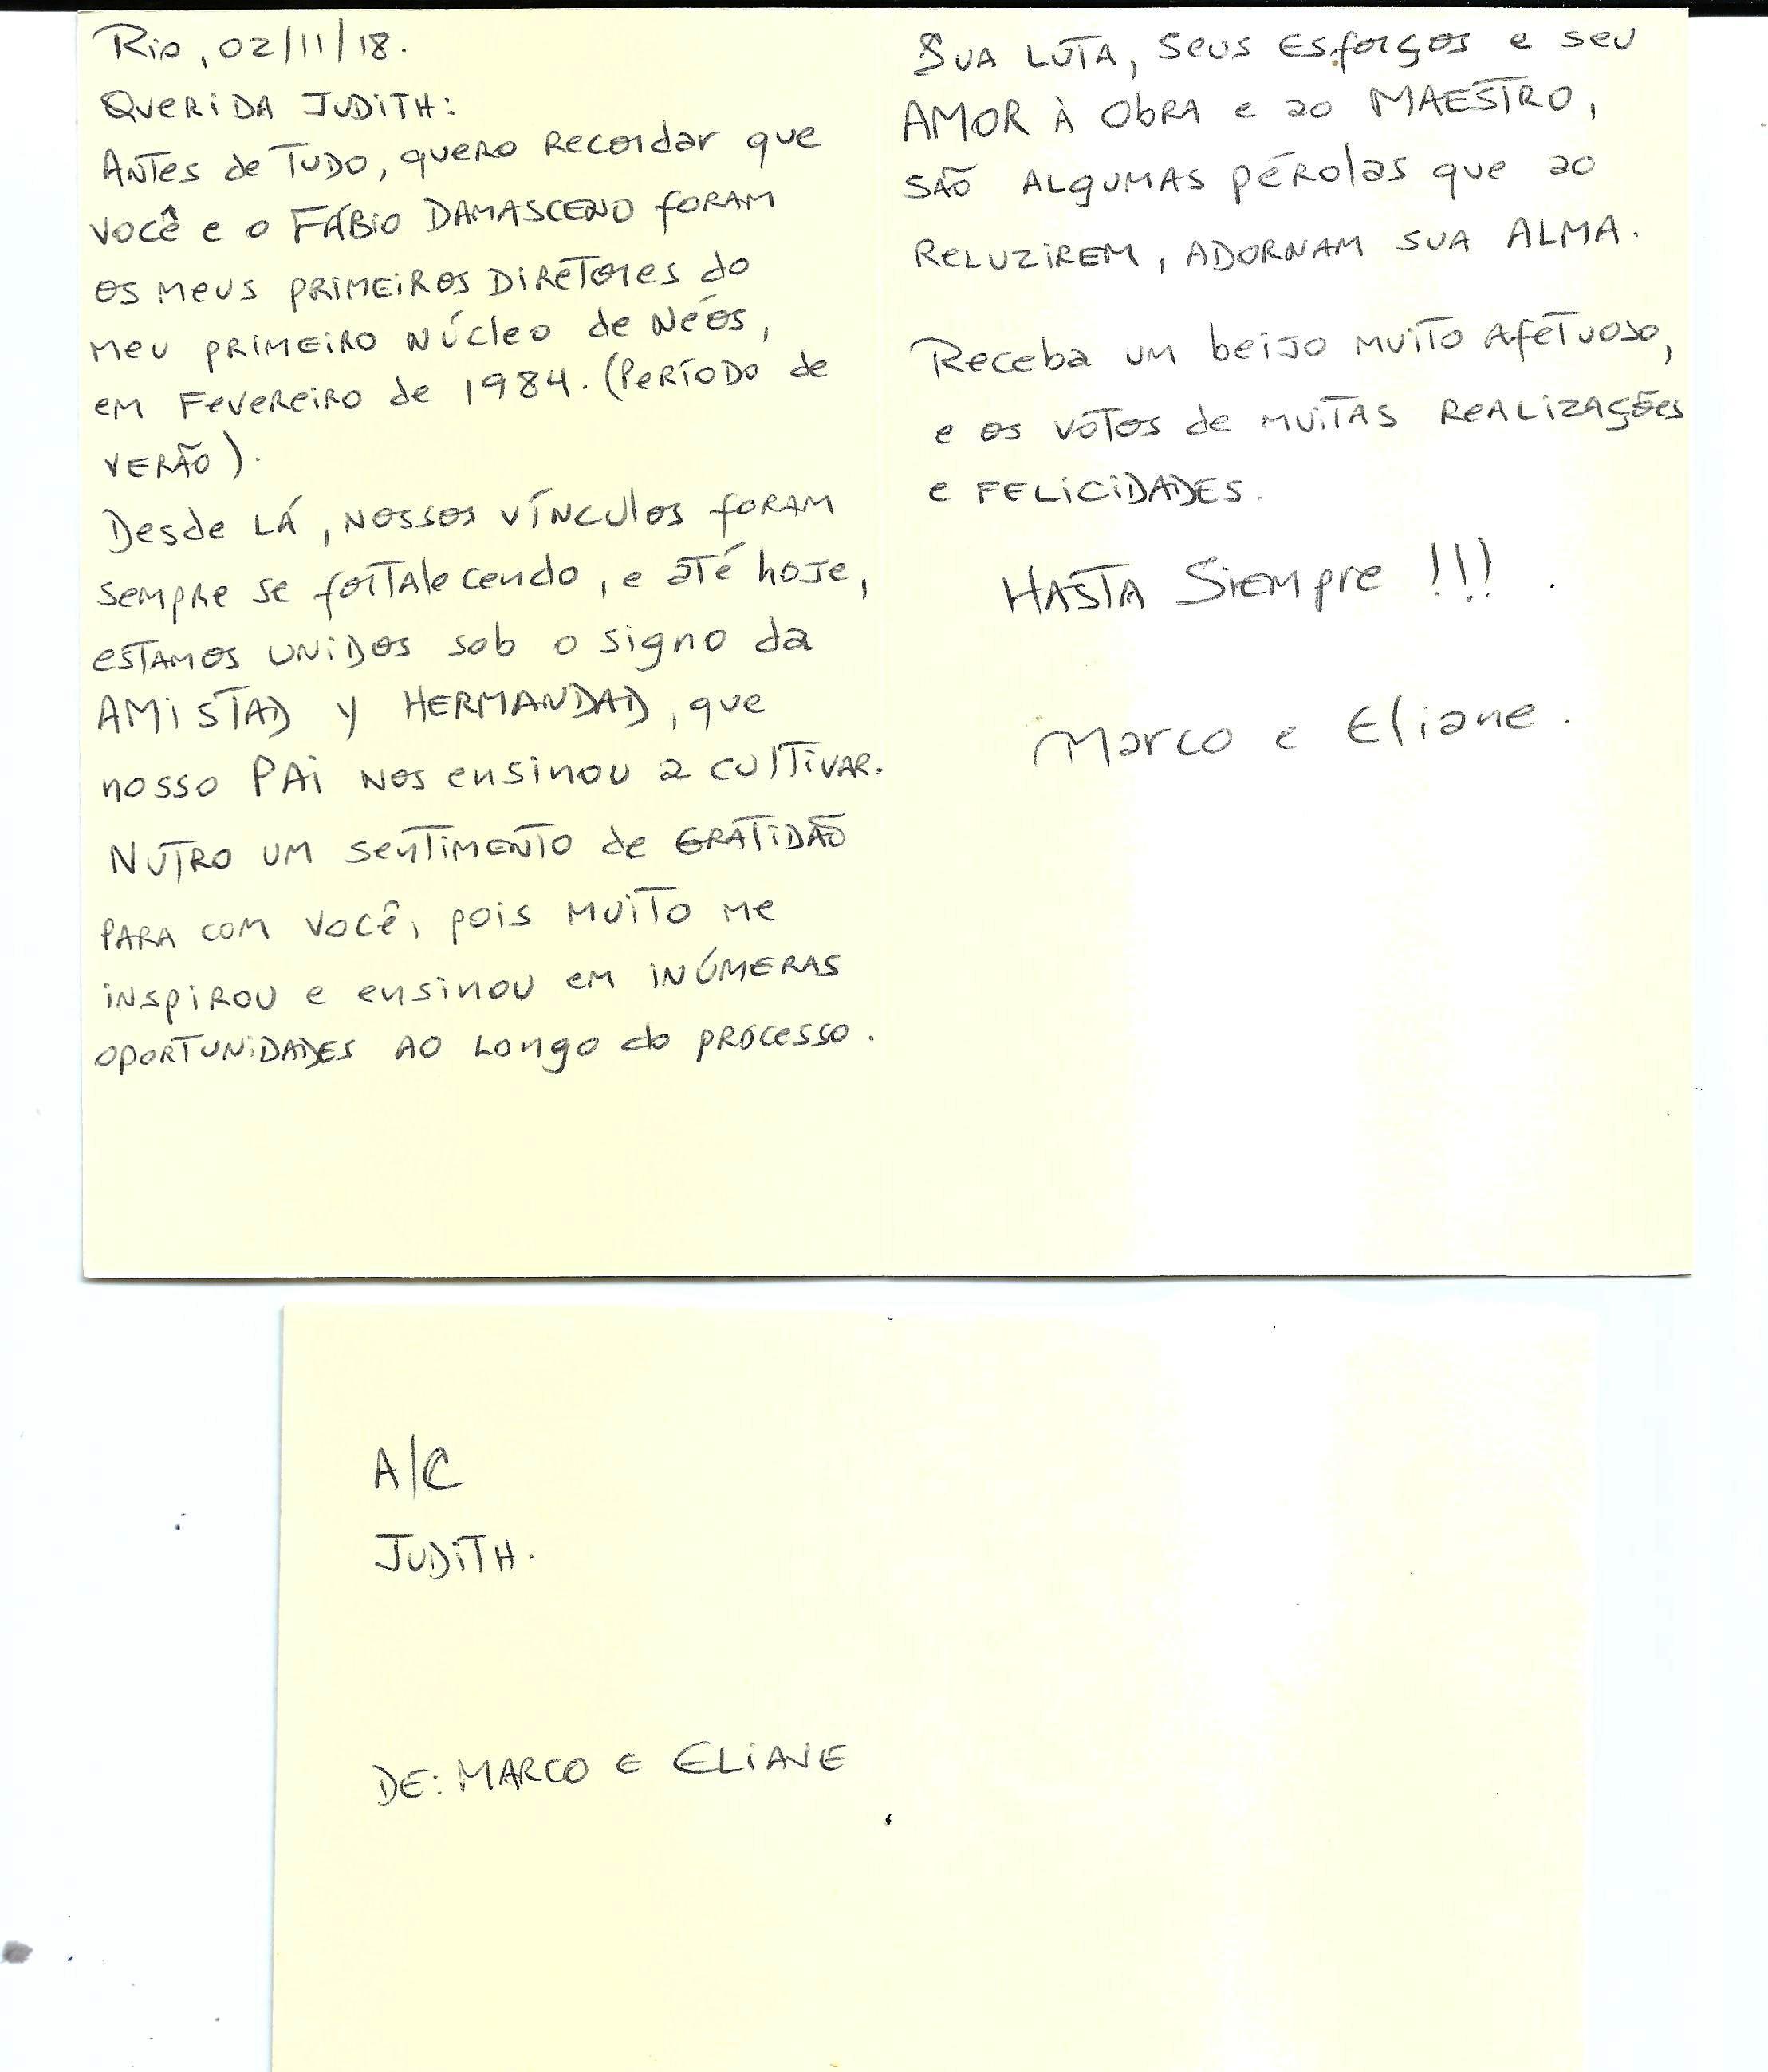 Rio, 02/11/18.
Querida Judith:
Antes de tudo, quero recordar que
você e o Fábio Damasceno foram
os meus primeiros diretores do
meu primeiro núcleo de Neós,
em Fevereiro de 1984. (Período de
verão).
Desde lá, nossos vínculos foram
sempre se fortalecendo, e até hoje,
estamos unidos sob o signo da
AMISTAD y HERMANDAD, que
nosso PAi nos ensinou a cultivar.
Nutro um sentimento de GRATIDÃO
para com você, pois muito me
inspirou e ensinou em inúmeras
oportunidades ao longo do processo.
Sua luta, seus esforços e seu
AMOR À Obra e ao MAESTRO,
são algumas pérolas que ao
reluzirem, adornam sua ALMA.
Receba um beijo muito afetuoso,
e os votos de muitas realizações
e FELICIDADES.
HASTA Siempre !!!
Marco e Eliane.
A/C
JUDITH.
DE: MARCO E ELIANE